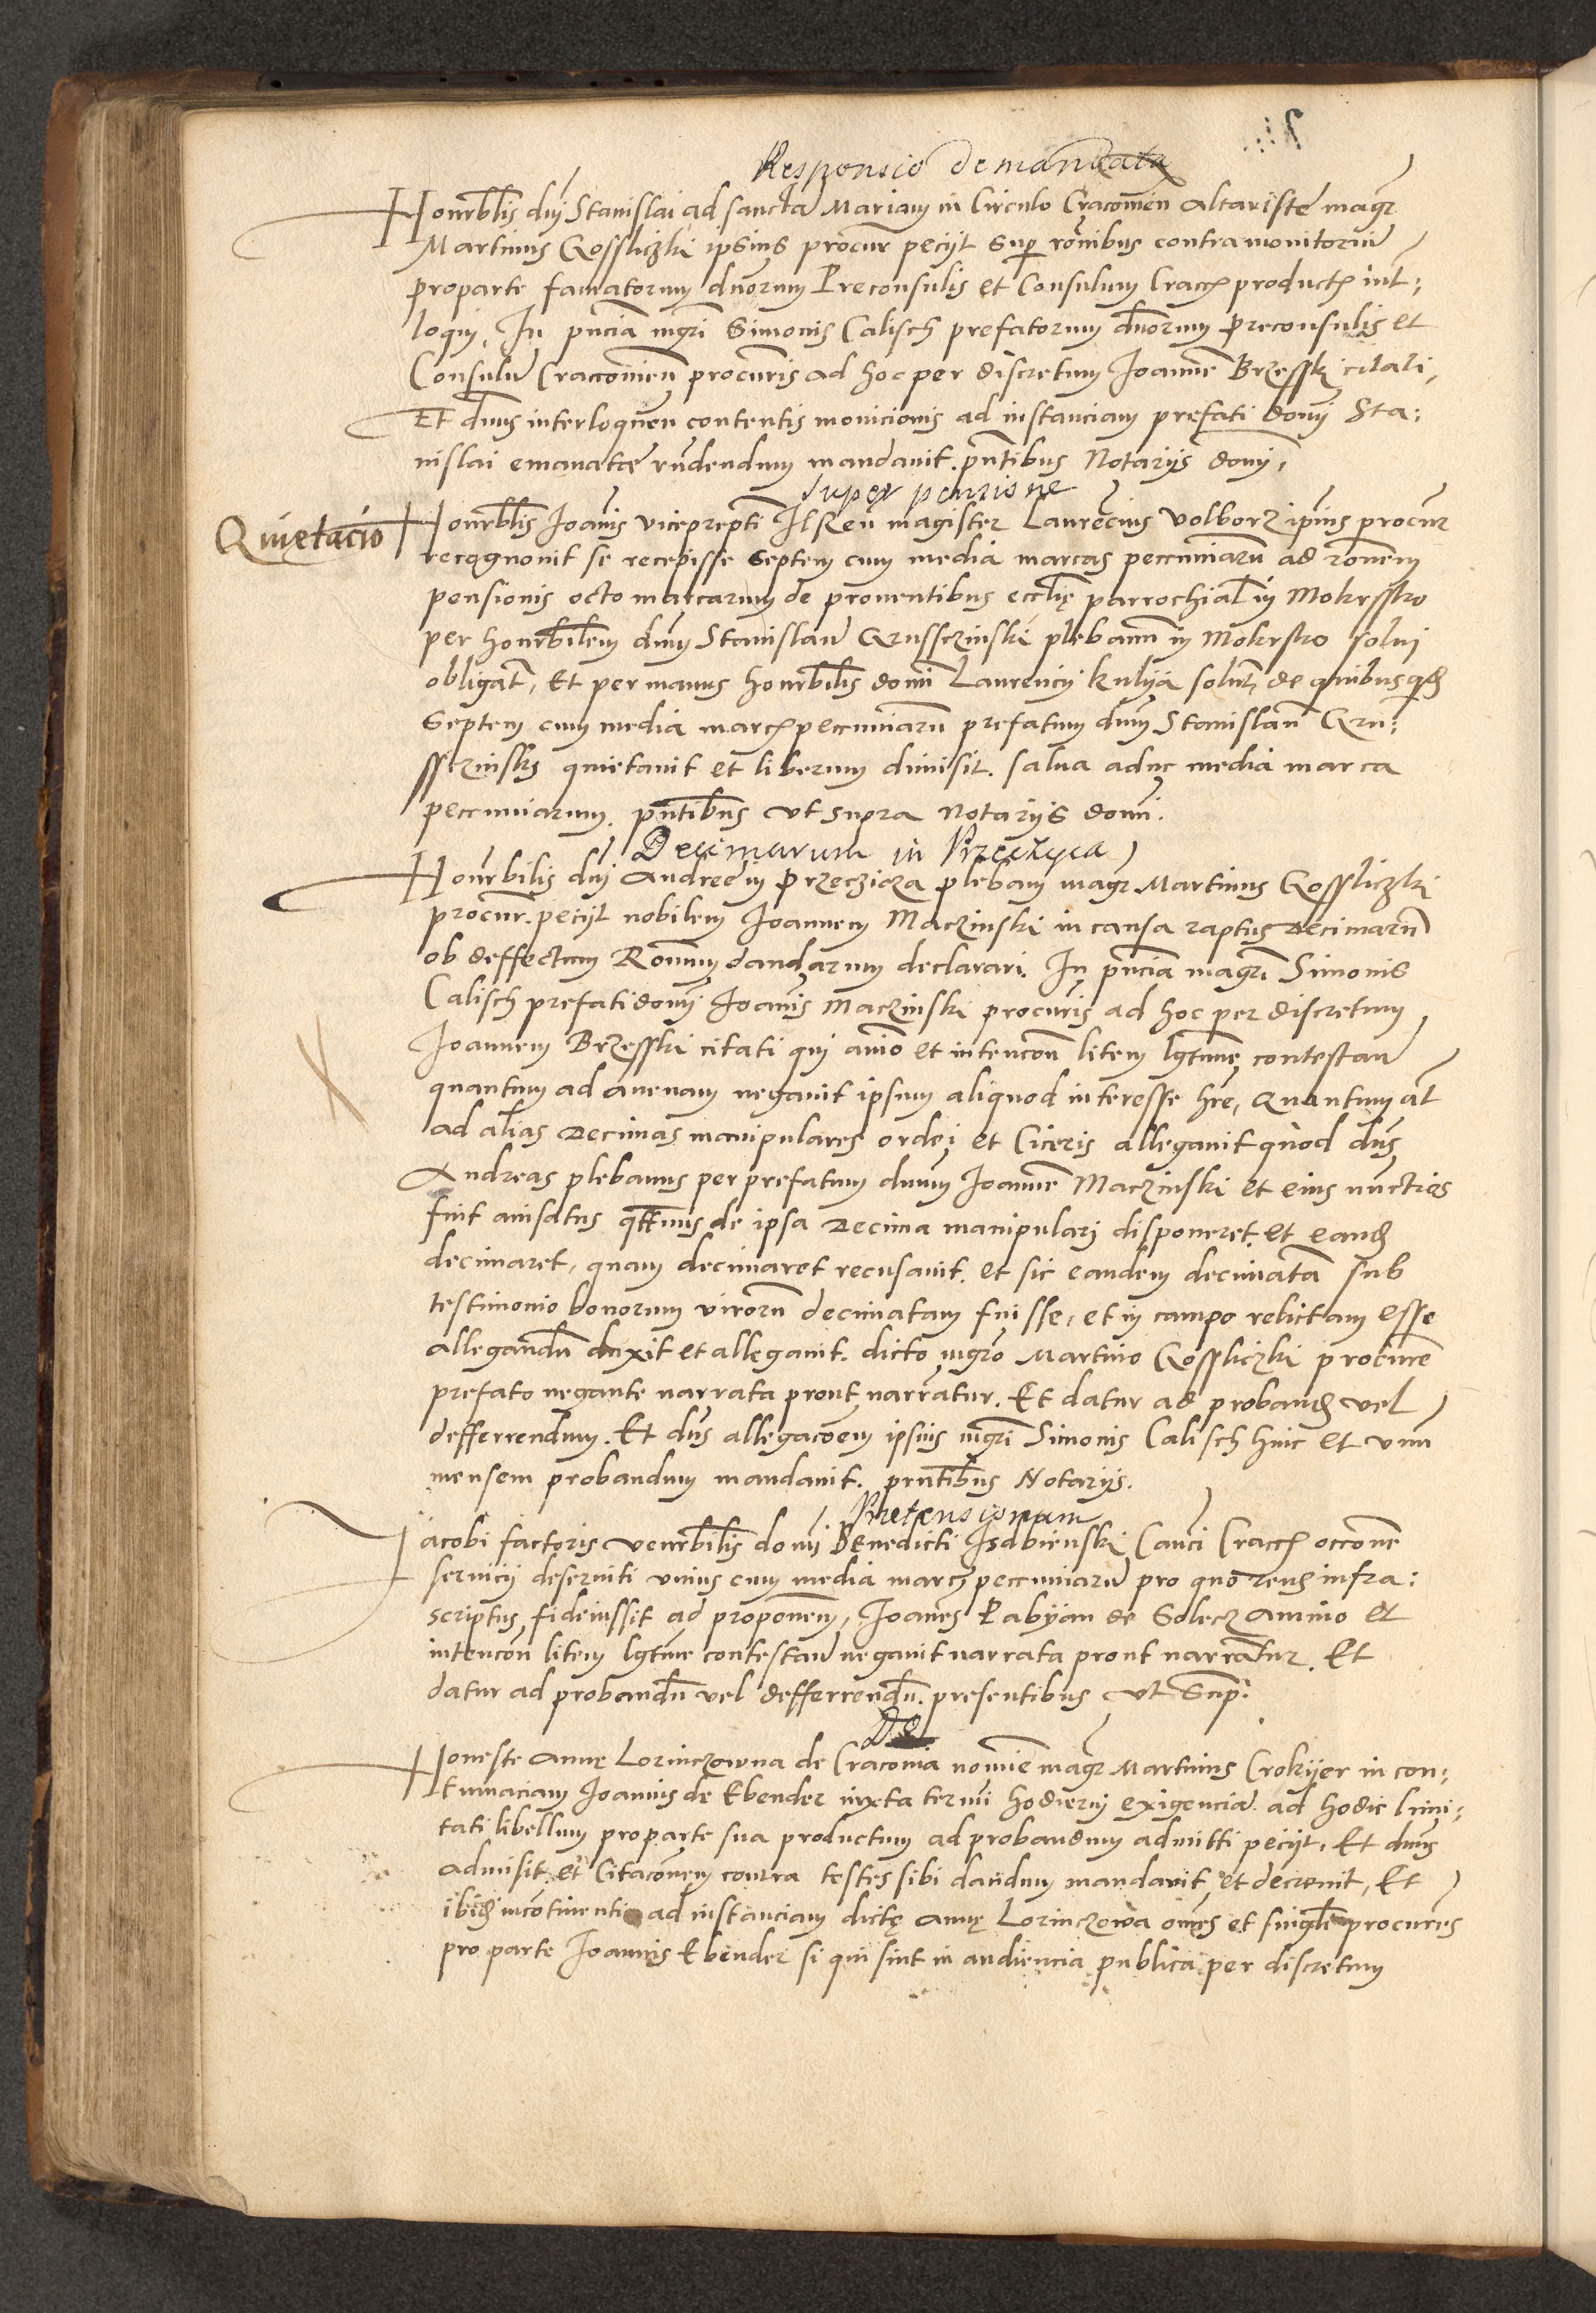 Responsio demandata
Honrblis dni Stanislai ad sancta Mariam in Circulo Cracovien Altariste magr
Martinus Gossliczki ipsius procur peciit Sup ronibus contra monitoriu
pro parte famatorum dnorum Preconsulis et Consulum Cracc product int:
loqui, In pncia mgri Simonis Calisch prefatorum dnorum preconsulis et
Consulu Craccovienn procuris ad hoc per discretum Joanne Brzesski citati,
Et dnus interloquen contentis monicionis ad instanciam prefati domi Sta:
nislai emanate rndendum mandavit. pntibus Notariis domi,
super pensione
Quietacio
Honrblis Joanis viceprepti Ilken magister Laurecius Volborz ipsius procur
recognovit se recepisse Septem cum media marcas pecuniaru ad ronem
pensionis octo marcarum de proventibus ecclie parrochial in Mokrssko
per honrbilem dnum Stanislau Grussczinski plebanu in Mokrsko solvi
obligat, Et per manus honrbilis domi Laurencii kulya solut, de quibusqd
Septem cum media marc pecuniaru prefatum dnum Stanislau Gru:
ssczinski quietavit et liberum dimisit. salva adhuc media marca
pecuniarum. pntibus ut supra Notariis domi.
Decimarum in Przeczyca
Honrbilis dni Andree in Przeczicza plebani magr Martinus Gossliczki
procur. peciit nobilem Joannem Maczinski in causa raptus decimaru
ob deffectum Ronum dandarum declarari. In pncia magri Simonis
Calisch prefati domi Joanis Maczinski procuris ad hoc per discretum
Joannem Brzesski citati qui animo et intencon litem lgtime contestan
quantum ad avenam negavit ipsum aliquod interesse hre, Quantum at
ad alias decimas manipulares ordei et Ciceris allegavit quod dns
Andreas plebanus per prefatum dnum Joanne Maczinski et eius nuctios
fuit avisatus qttnus de ipsa decima manipulari disponeret et eand
decimaret, quam decimaret recusavit. et sic eandem decimata sub
testimonio bonorum viroru decimatam fuisse, et in campo relictam esse
allegandu duxit et allegavit. dicto mgro Martino Gossliczki procure
prefato negante narrata prout narratur. Et datur ad proband vel
defferrendum. Et dns allegacoem ipsius mgri Simonis Calisch hinc et unu
mensem probandum mandavit. prntibus Notariis.
Pretensionum
Jacobi factoris venrbilis domi Benedicti Isdbienski Canci Cracc occone
servicii deserviti unius cum media marc pecuniaru pro quo reus infra:
scriptus fideiussit ad proponem, Joanes Pabyan de Solecz animo et
intencon litem lgtime contestan negavit narrata prout narratur. Et
datur ad probandu vel defferrendu. presentibus ut Sup.
De
Honeste Anne Lorinczowna de Cracovia nomie magr Martinus Crokyer in con:
tumaciam Joannis de Ebender iuxta termi hodierni exigencia ad hodie limi:
tati libellum pro parte sua productum ad probandum admitti peciit, Et dnus
admisit et Citaconem contra testes sibi dandum mandavit et decrevit, Et
ibid incontinenti ad instanciam dicte Anne Lorinczowa omes et singlos procures
pro parte Joannis Ebender si qui sint in audiencia publica per discretum